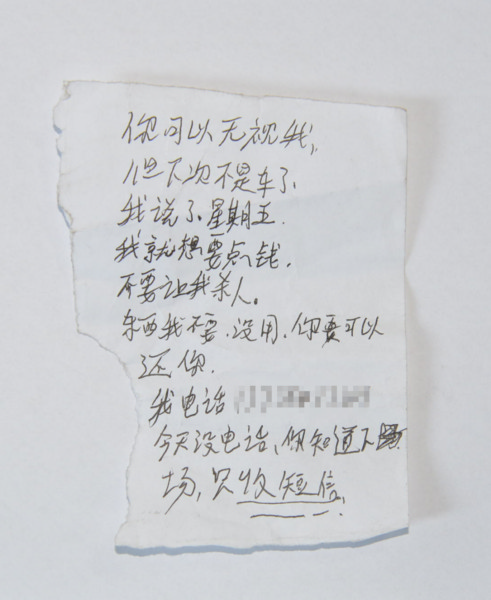 你可以无视我,
但下次不是车了,
我说了星期五.
我就想要点钱,
不要让我杀人。
东西我不要.没用.你要可以
还你.
我电话
今天没电话,你知道下
场,只收短信,